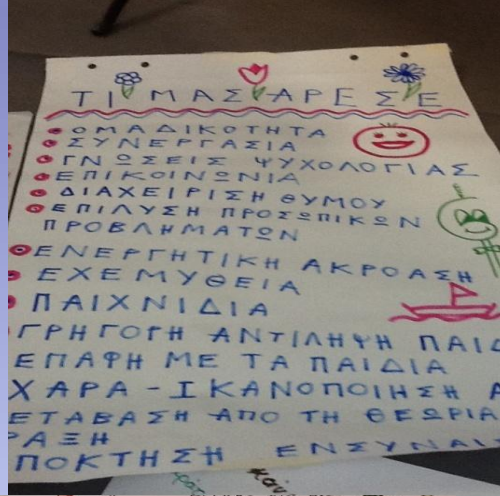 ΤΙ ΜΑΣ ΑΡΕΣΕ
ΟΜΑΔΙΚΟΤΗΤΑ
ΣΥΝΕΡΓΑΣΙΑ
ΓΝΩΣΕΙΣ ΨΥΧΟΛΟΓΙΑΣ
ΕΠΙΚΟΙΝΩΝΙΑ
ΔΙΑΧΕΙΡΙΣΗ ΘΥΜΟΥ
ΕΠΙΛΥΣΗ ΠΡΟΣΩΠΙΚΩΝ
ΠΡΟΒΛΗΜΑΤΩΝ
ΕΝΕΡΓΗΤΙΚΗ ΑΚΡΟΑΣΗ
ΕΧΕΜΥΘΕΙΑ
ΠΑΙΧΝΙΔΙΑ
ΓΡΗΓΟΡΗ ΑΝΤΙΛΗΨΗ ΠΑΙΔ
ΕΠΑΦΗ ΜΕ ΤΑ ΠΑΙΔΙΑ
ΧΑΡΑ - ΙΚΑΝΟΠΟΙΗΣΗ Α
ΕΤΑΒΑΣΗ ΑΠΟ ΤΗ ΘΕΩΡΙΑ
ΡΑΞΗ
ΠΟΚΤΗΣΗ ΕΝΣΥΝΑΙ
και